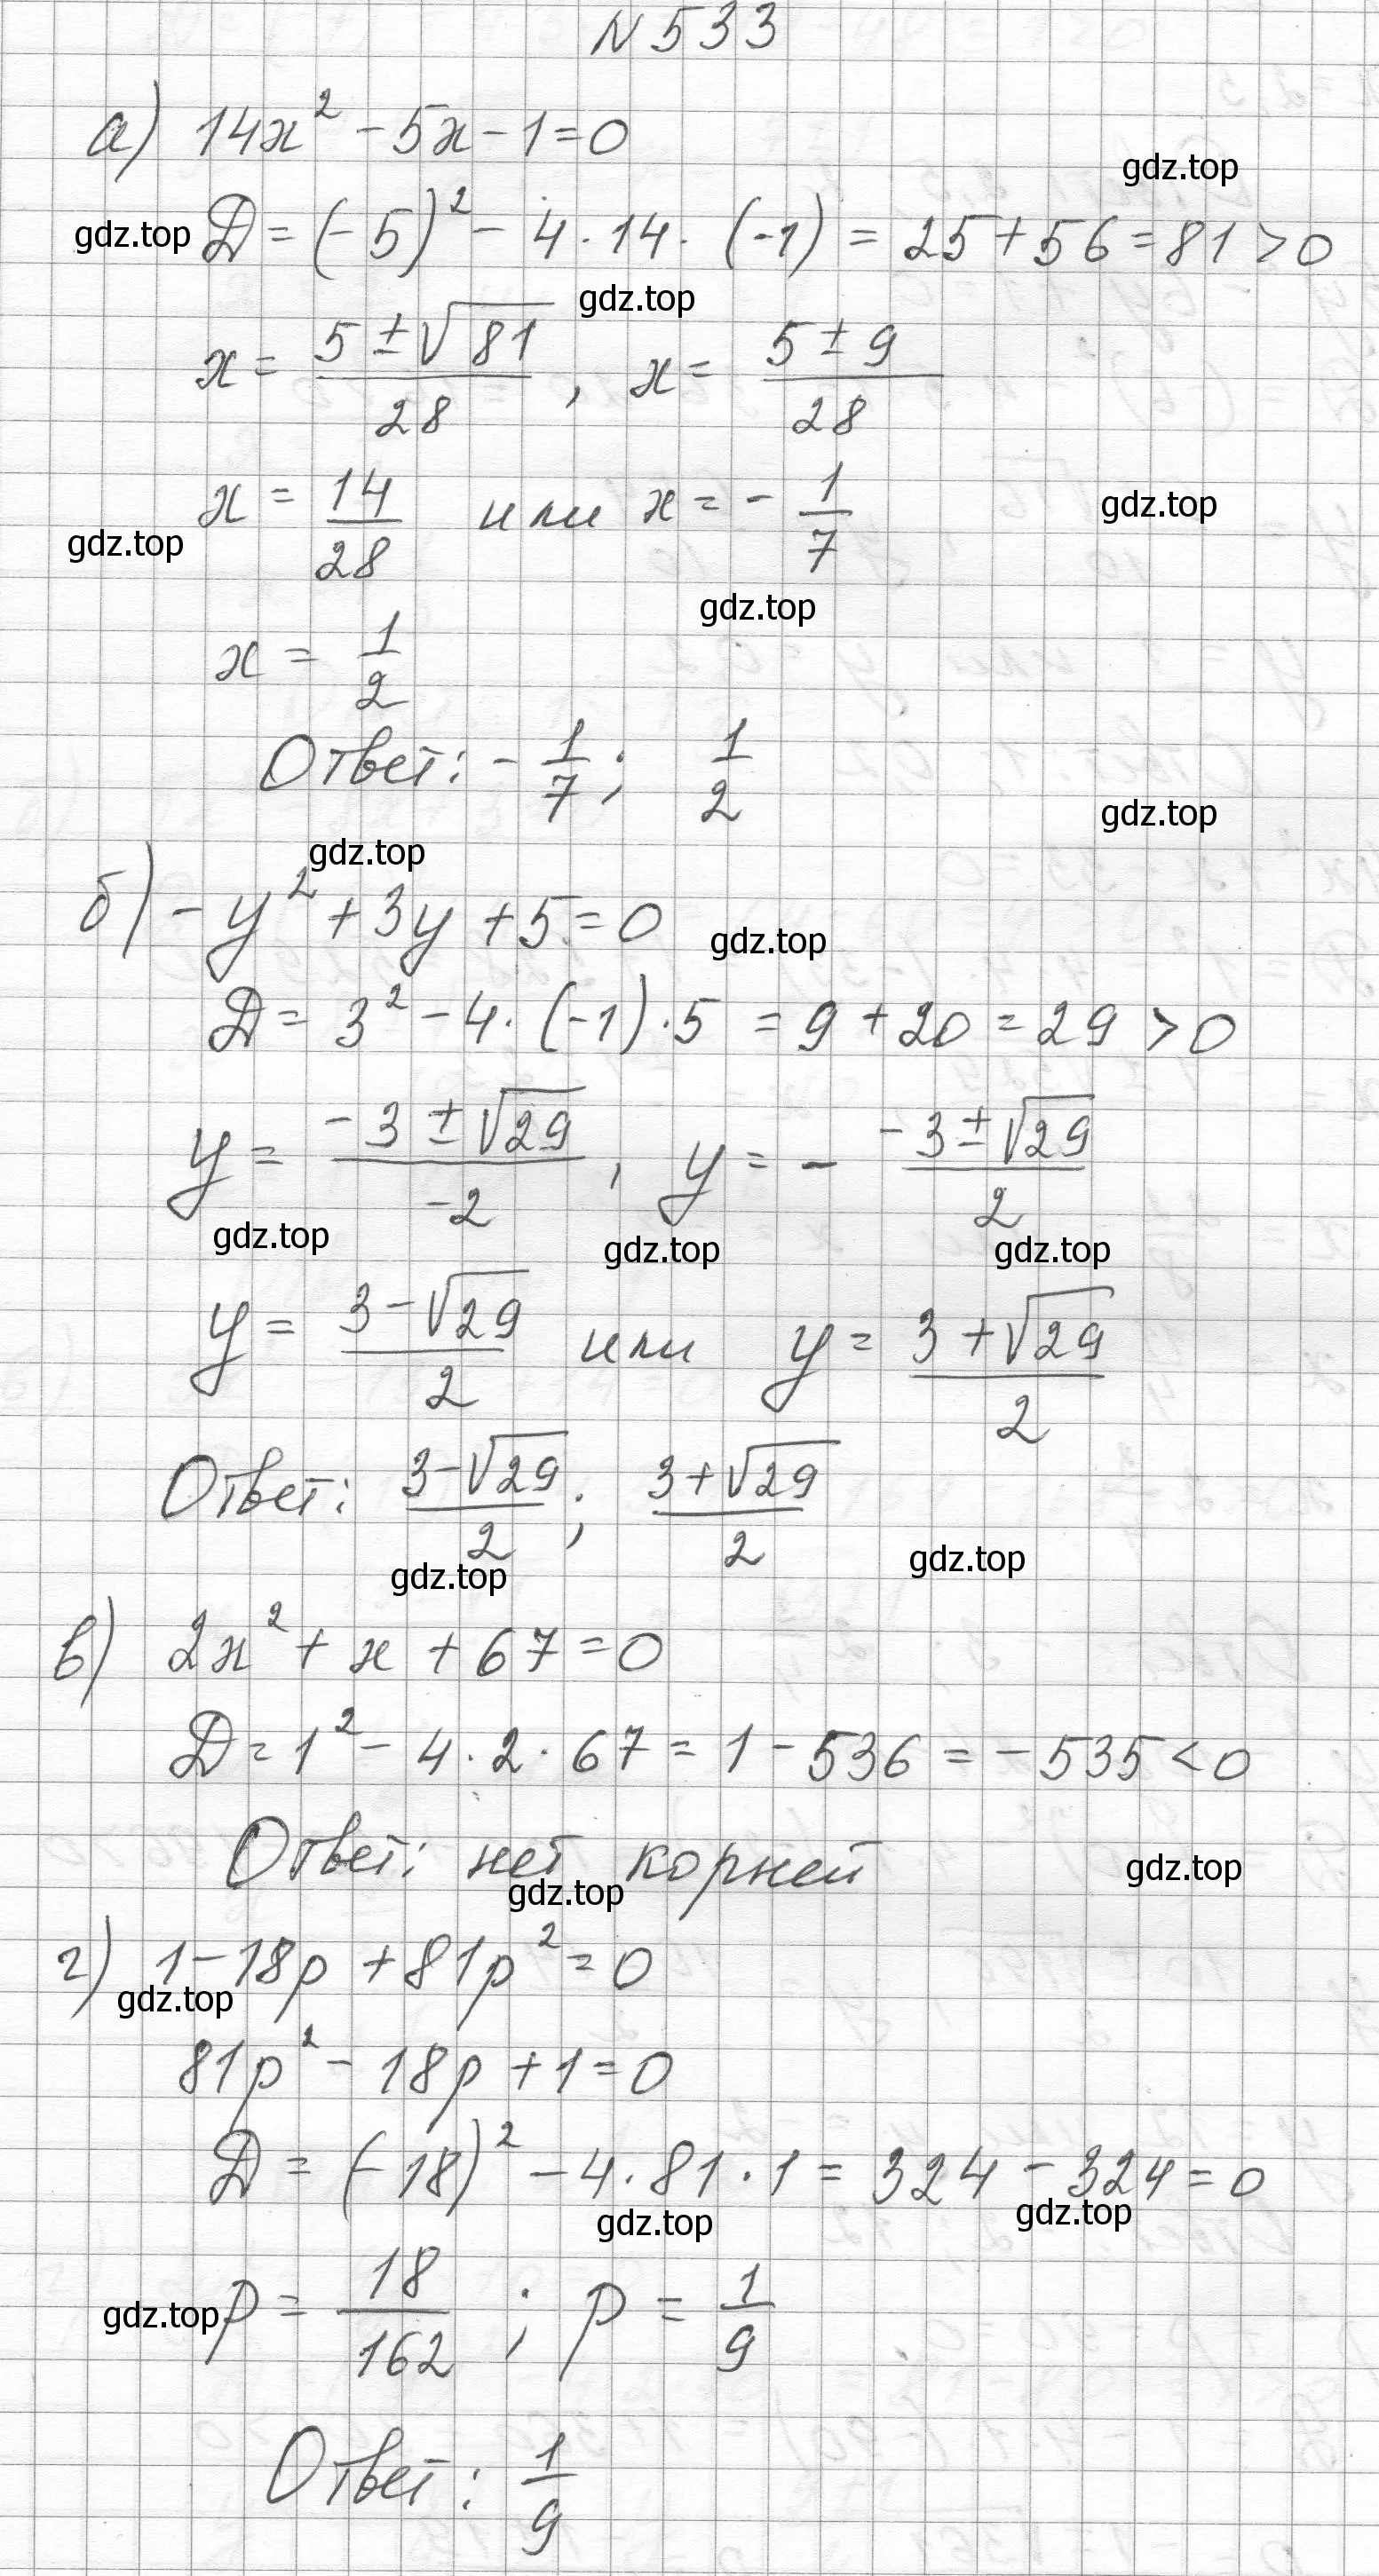 N 533
а) 14x² - 5x - 1 = 0
gdz.top
gdz.top
D = (-5)² - 4 · 14 · (-1) = 25 + 56 = 81 > 0
gdz.top
x = (5 ± √81)/28 , x = (5 ± 9)/28
x = 14/28 или x = - 1/7
gdz.top
gdz.top
gdz.top
x = 1/2
Ответ: - 1/7 ; 1/2
gdz.top
gdz.top
б) - y² + 3y + 5 = 0
gdz.top
D = 3² - 4 · (-1) · 5 = 9 + 20 = 29 > 0
y = (-3 ± √29)/-2 , y = - (-3 ± √29)/2
gdz.top gdz.top gdz.top
y = (3 - √29)/2 или y = (3 + √29)/2
Ответ: (3 - √29)/2 ; (3 + √29)/2
gdz.top
gdz.top
в) 2x² + x + 67 = 0
D = 1² - 4 · 2 · 67 = 1 - 536 = - 535 < 0
Ответ: нет корней
gdz.top
gdz.top
г) 1 - 18p + 81p² = 0
gdz.top
81p² - 18p + 1 = 0
D = (-18)² - 4 · 81 · 1 = 324 - 324 = 0
gdz.top
gdz.top
gdz.top
p = 18/162 ; p = 1/9
Ответ: 1/9